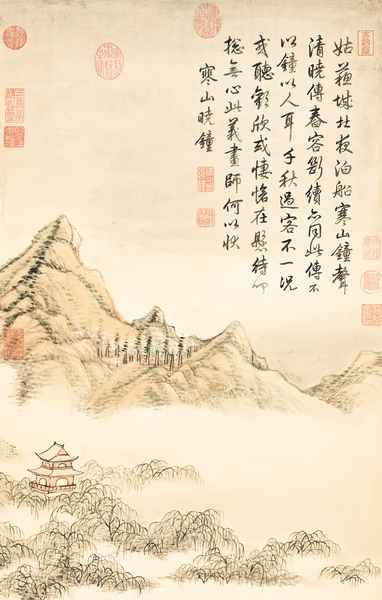 姑蘓城北夜泊船寒山鐘聲
清曉傳舂容斷續亦同此傳不
以鐘以人耳千秋過客不一況
或聽歡欣或悽愴在懸待叩
揔無心此義畫師何以狀
寒山曉鐘